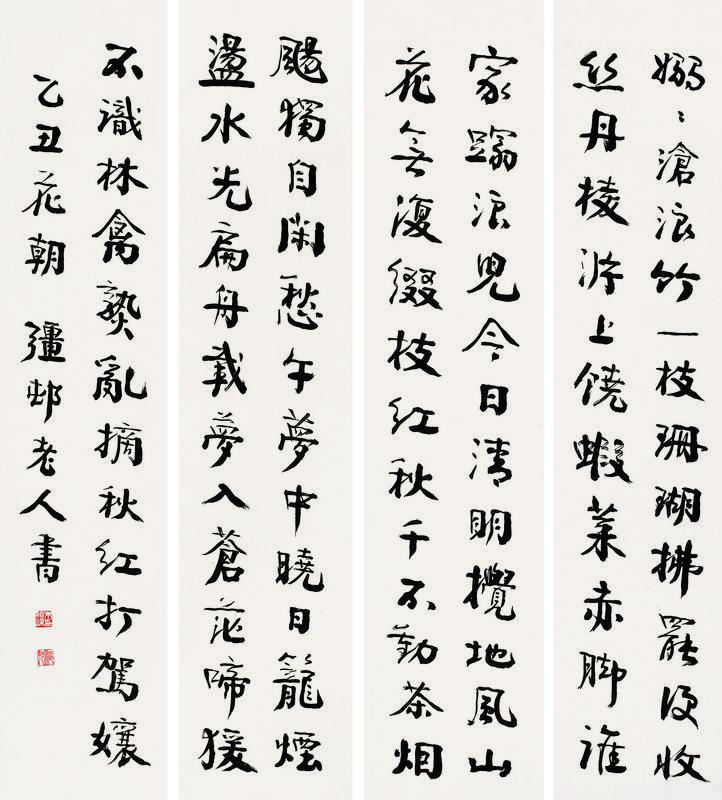 嫋〻滄浪竹一枝珊瑚拂罷便收
絲丹棱沜上饒蝦菜赤脚誰
家蹋浪兒今日清明攪地風山
花無復綴枝紅秋千不動茶烟
颺獨自閑愁午夢中曉日籠煙
盪水光扁舟載夢入蒼茫啼猨
不識林禽熟亂摘秋紅打駕孃
乙丑花朝 彊邨老人書